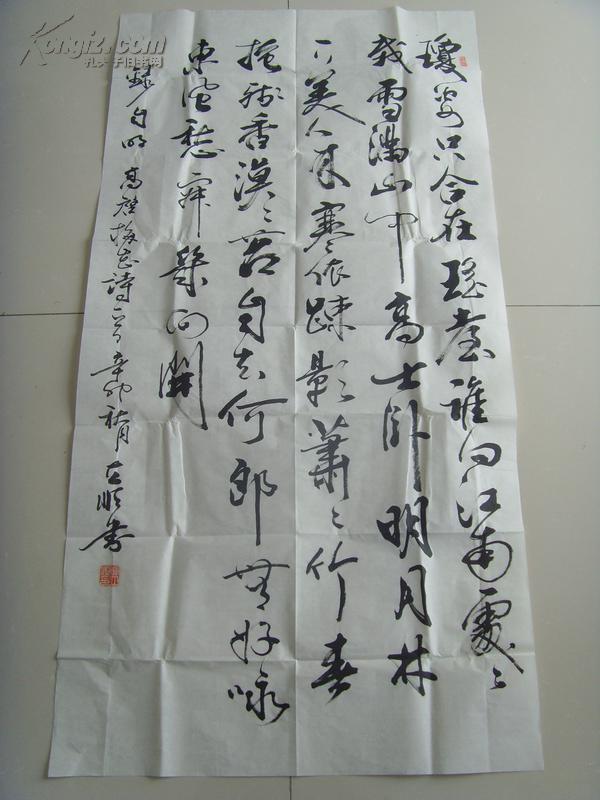 瓊姿只合在瑤臺誰向江南處々
栽雪滿山中高士卧明月林
下美人来寒依疎影蕭々竹春
掩殘香漠々苔自去何郎無好咏
東風愁寂幾回開
錄自明高啓梅花詩一首辛卯秋月左順書
Kongfz.com
孔夫子旧书网